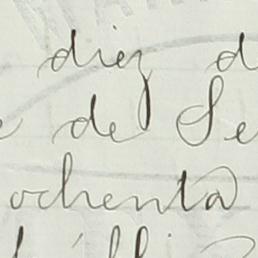 diez d
de Se
ochenta